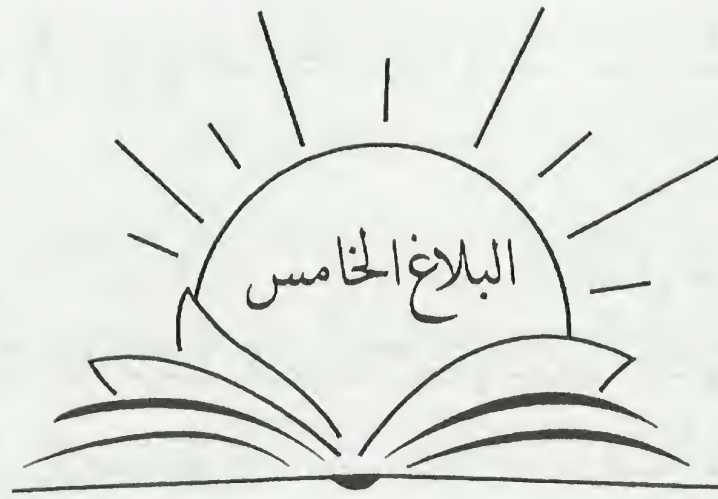 البلاغ الخامس